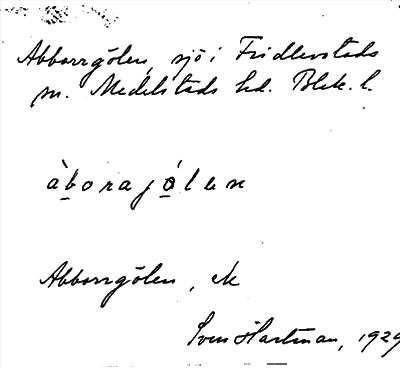 Abborrgölen, sjö i Fridlevstads
sn. Medelstads hd. Blek. l.
àb̲oraj ó̲len
Abborrgölen, ek
Sven Hartman, 1929